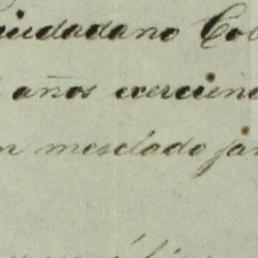 ciudadano Col
años exercien
n mesclado ja